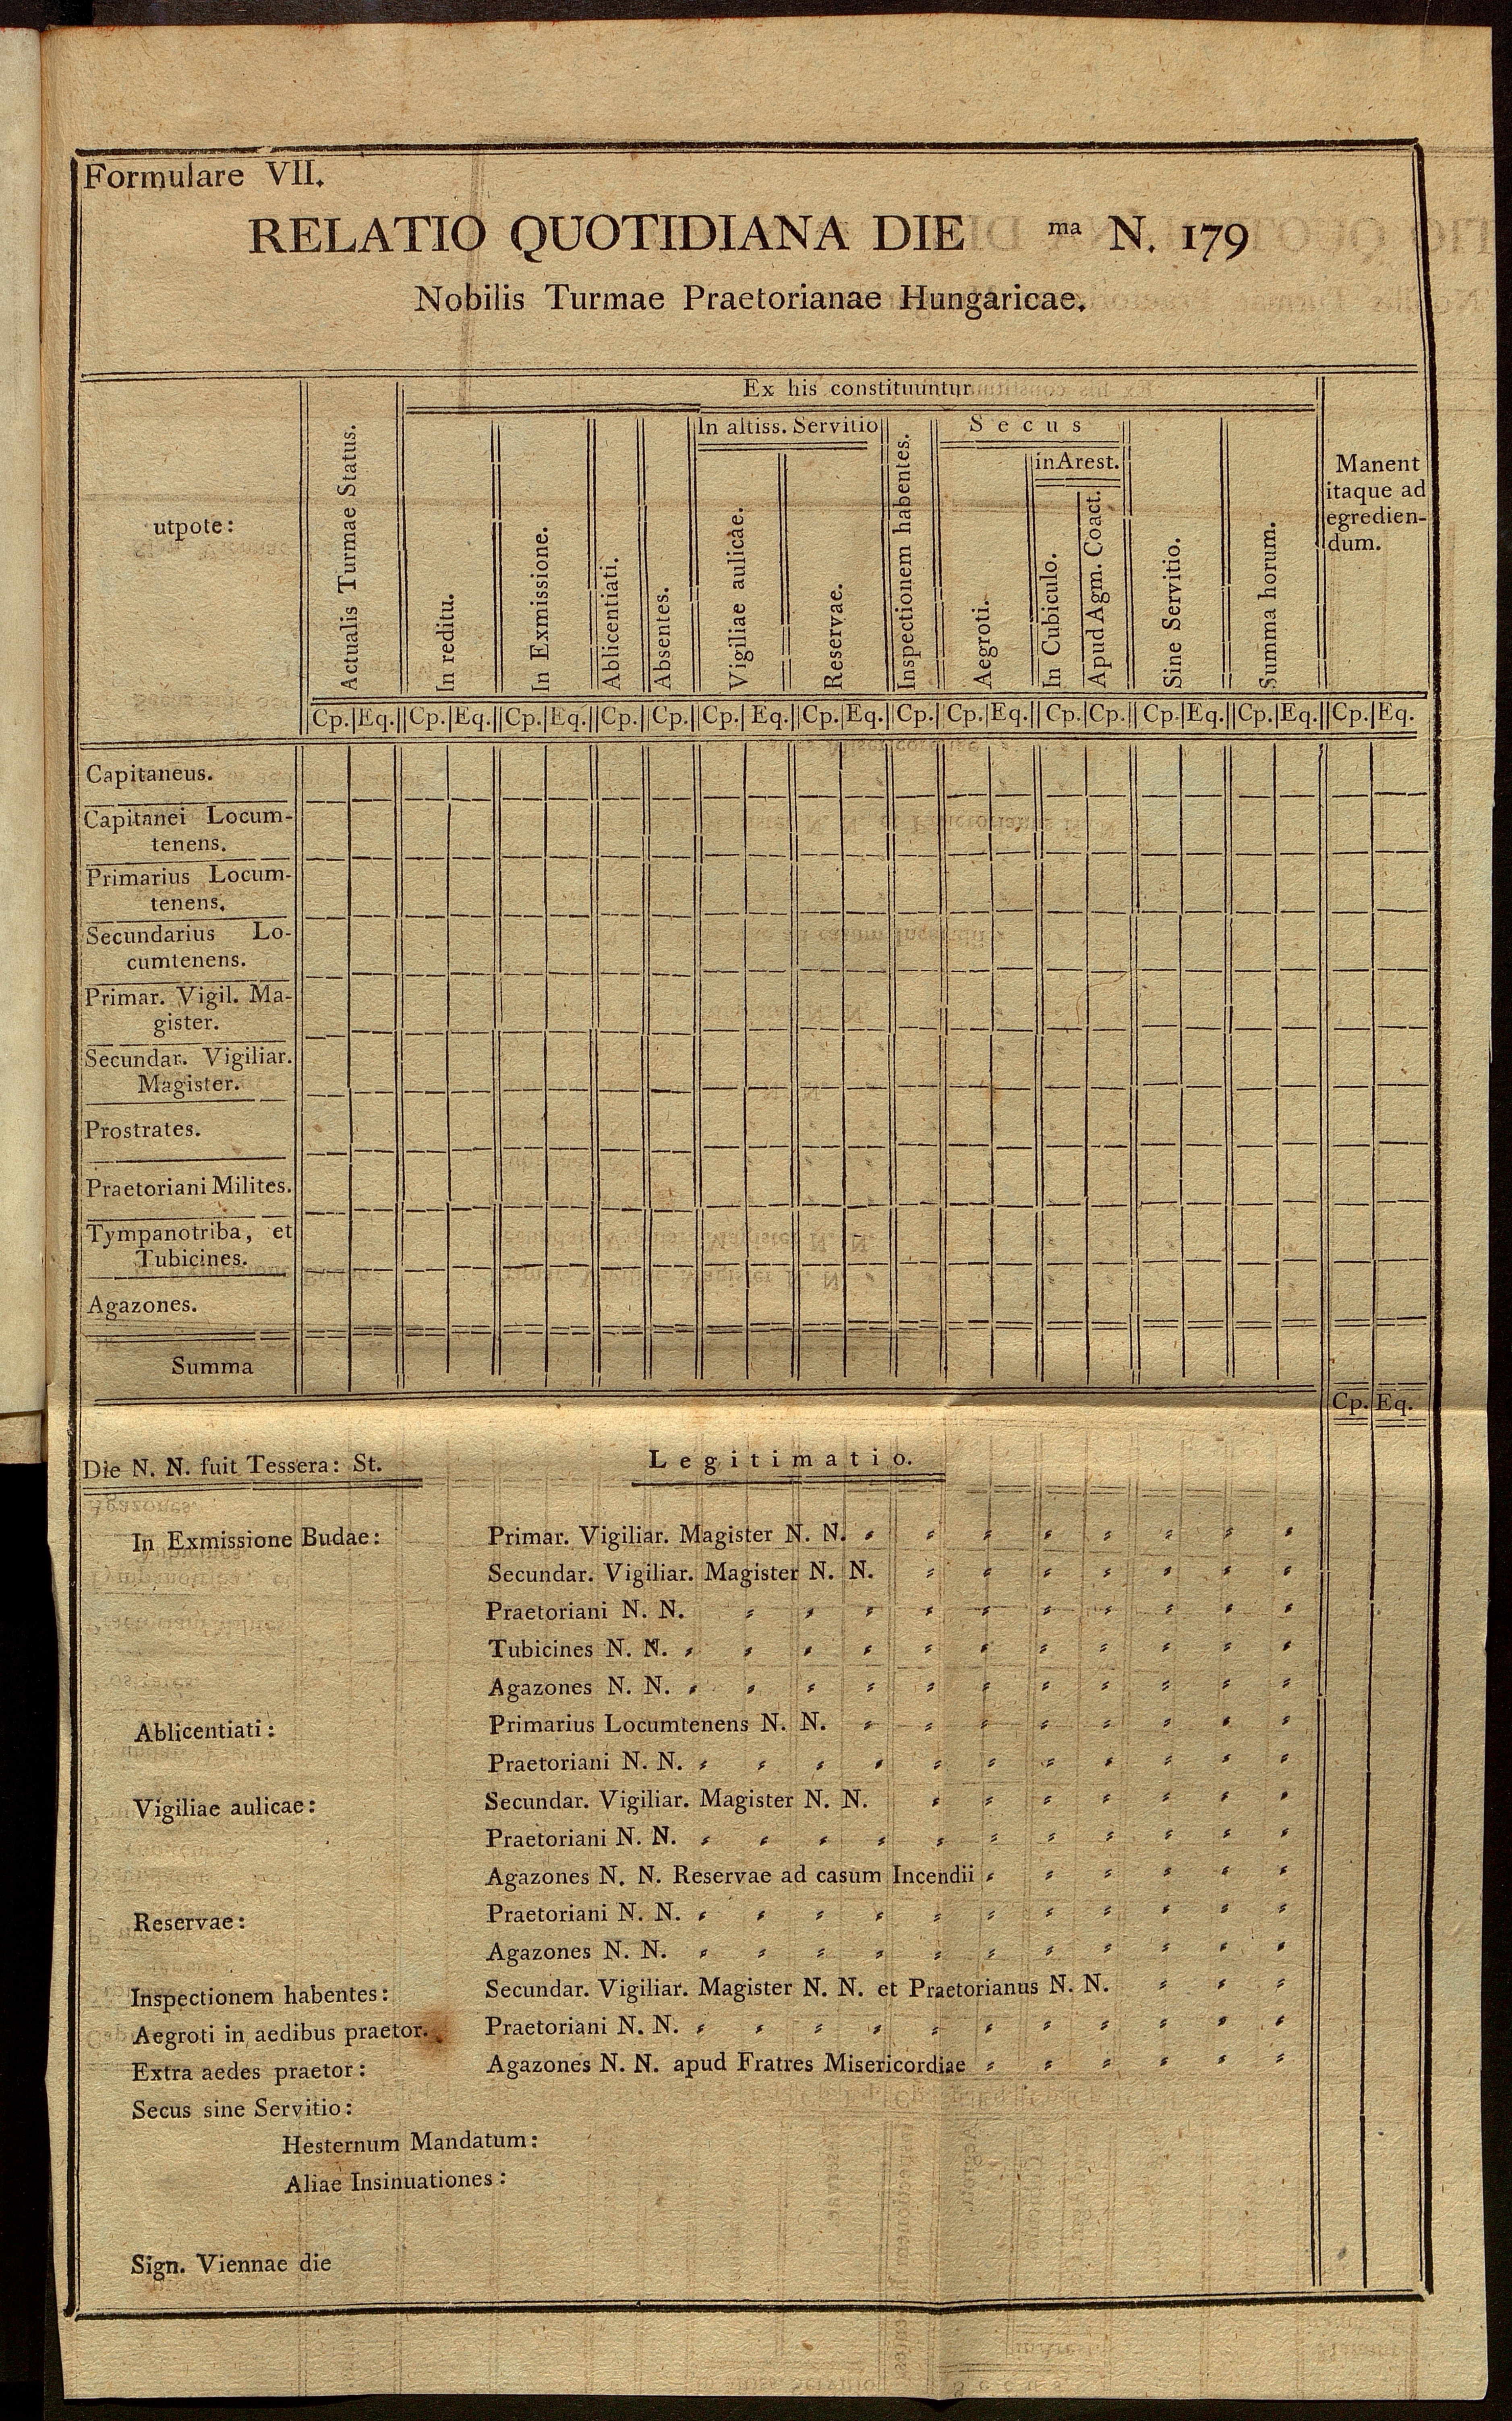 Formulare VII.
RELATIO QUOTIDIANA DIE ma N. 179
Nobilis Turmae Praetorianae Hungaricae.
utpote:
Actualis Turmae Status.
Ex his constituuntur
In reditu.
In Exmissione.
Ablicentiati.
Absentes.
In altiss. Servitio
Vigiliae aulicae.
Reservae.
Inspectionem habentes.
Secus
Aegroti.
in Arest.
In Cubiculo.
Apud Agm. Coact.
Sine Servitio.
Summa horum.
Manent
itaque ad
egredien-
dum.
Cp. Eq. Cp. Eq. Cp. Eq. Cp. Cp. Cp. Eq. Cp. Eq. Cp. Cp. Eq. Cp. Cp. Cp. Eq. Cp. Eq. Cp. Eq.
Capitaneus.
Capitanei Locum-
tenens.
Primarius Locum-
tenens.
Secundarius Lo-
cumtenens.
Primar. Vigil. Ma-
gister.
Secundar. Vigiliar.
Magister.
Prostrates.
Praetoriani Milites.
Tympanotriba, et
Tubicines.
Agazones.
Summa
Cp. Eq.
Die N. N. fuit Tessera: St.
Legitimatio.
In Exmissione Budae: Primar. Vigiliar. Magister N. N.
Secundar. Vigiliar. Magister N. N.
Praetoriani N. N.
Tubicines N. N.
Agazones N. N.
Ablicentiati: Primarius Locumtenens N. N.
Praetoriani N. N.
Vigiliae aulicae: Secundar. Vigiliar. Magister N. N.
Praetoriani N. N.
Agazones N. N. Reservae ad casum Incendii
Reservae: Praetoriani N. N.
Agazones N. N.
Inspectionem habentes: Secundar. Vigiliar. Magister N. N. et Praetorianus N. N.
Aegroti in aedibus praetor. Praetoriani N. N.
Extra aedes praetor: Agazones N. N. apud Fratres Misericordiae
Secus sine Servitio:
Hesternum Mandatum:
Aliae Insinuationes:
Sign. Viennae die